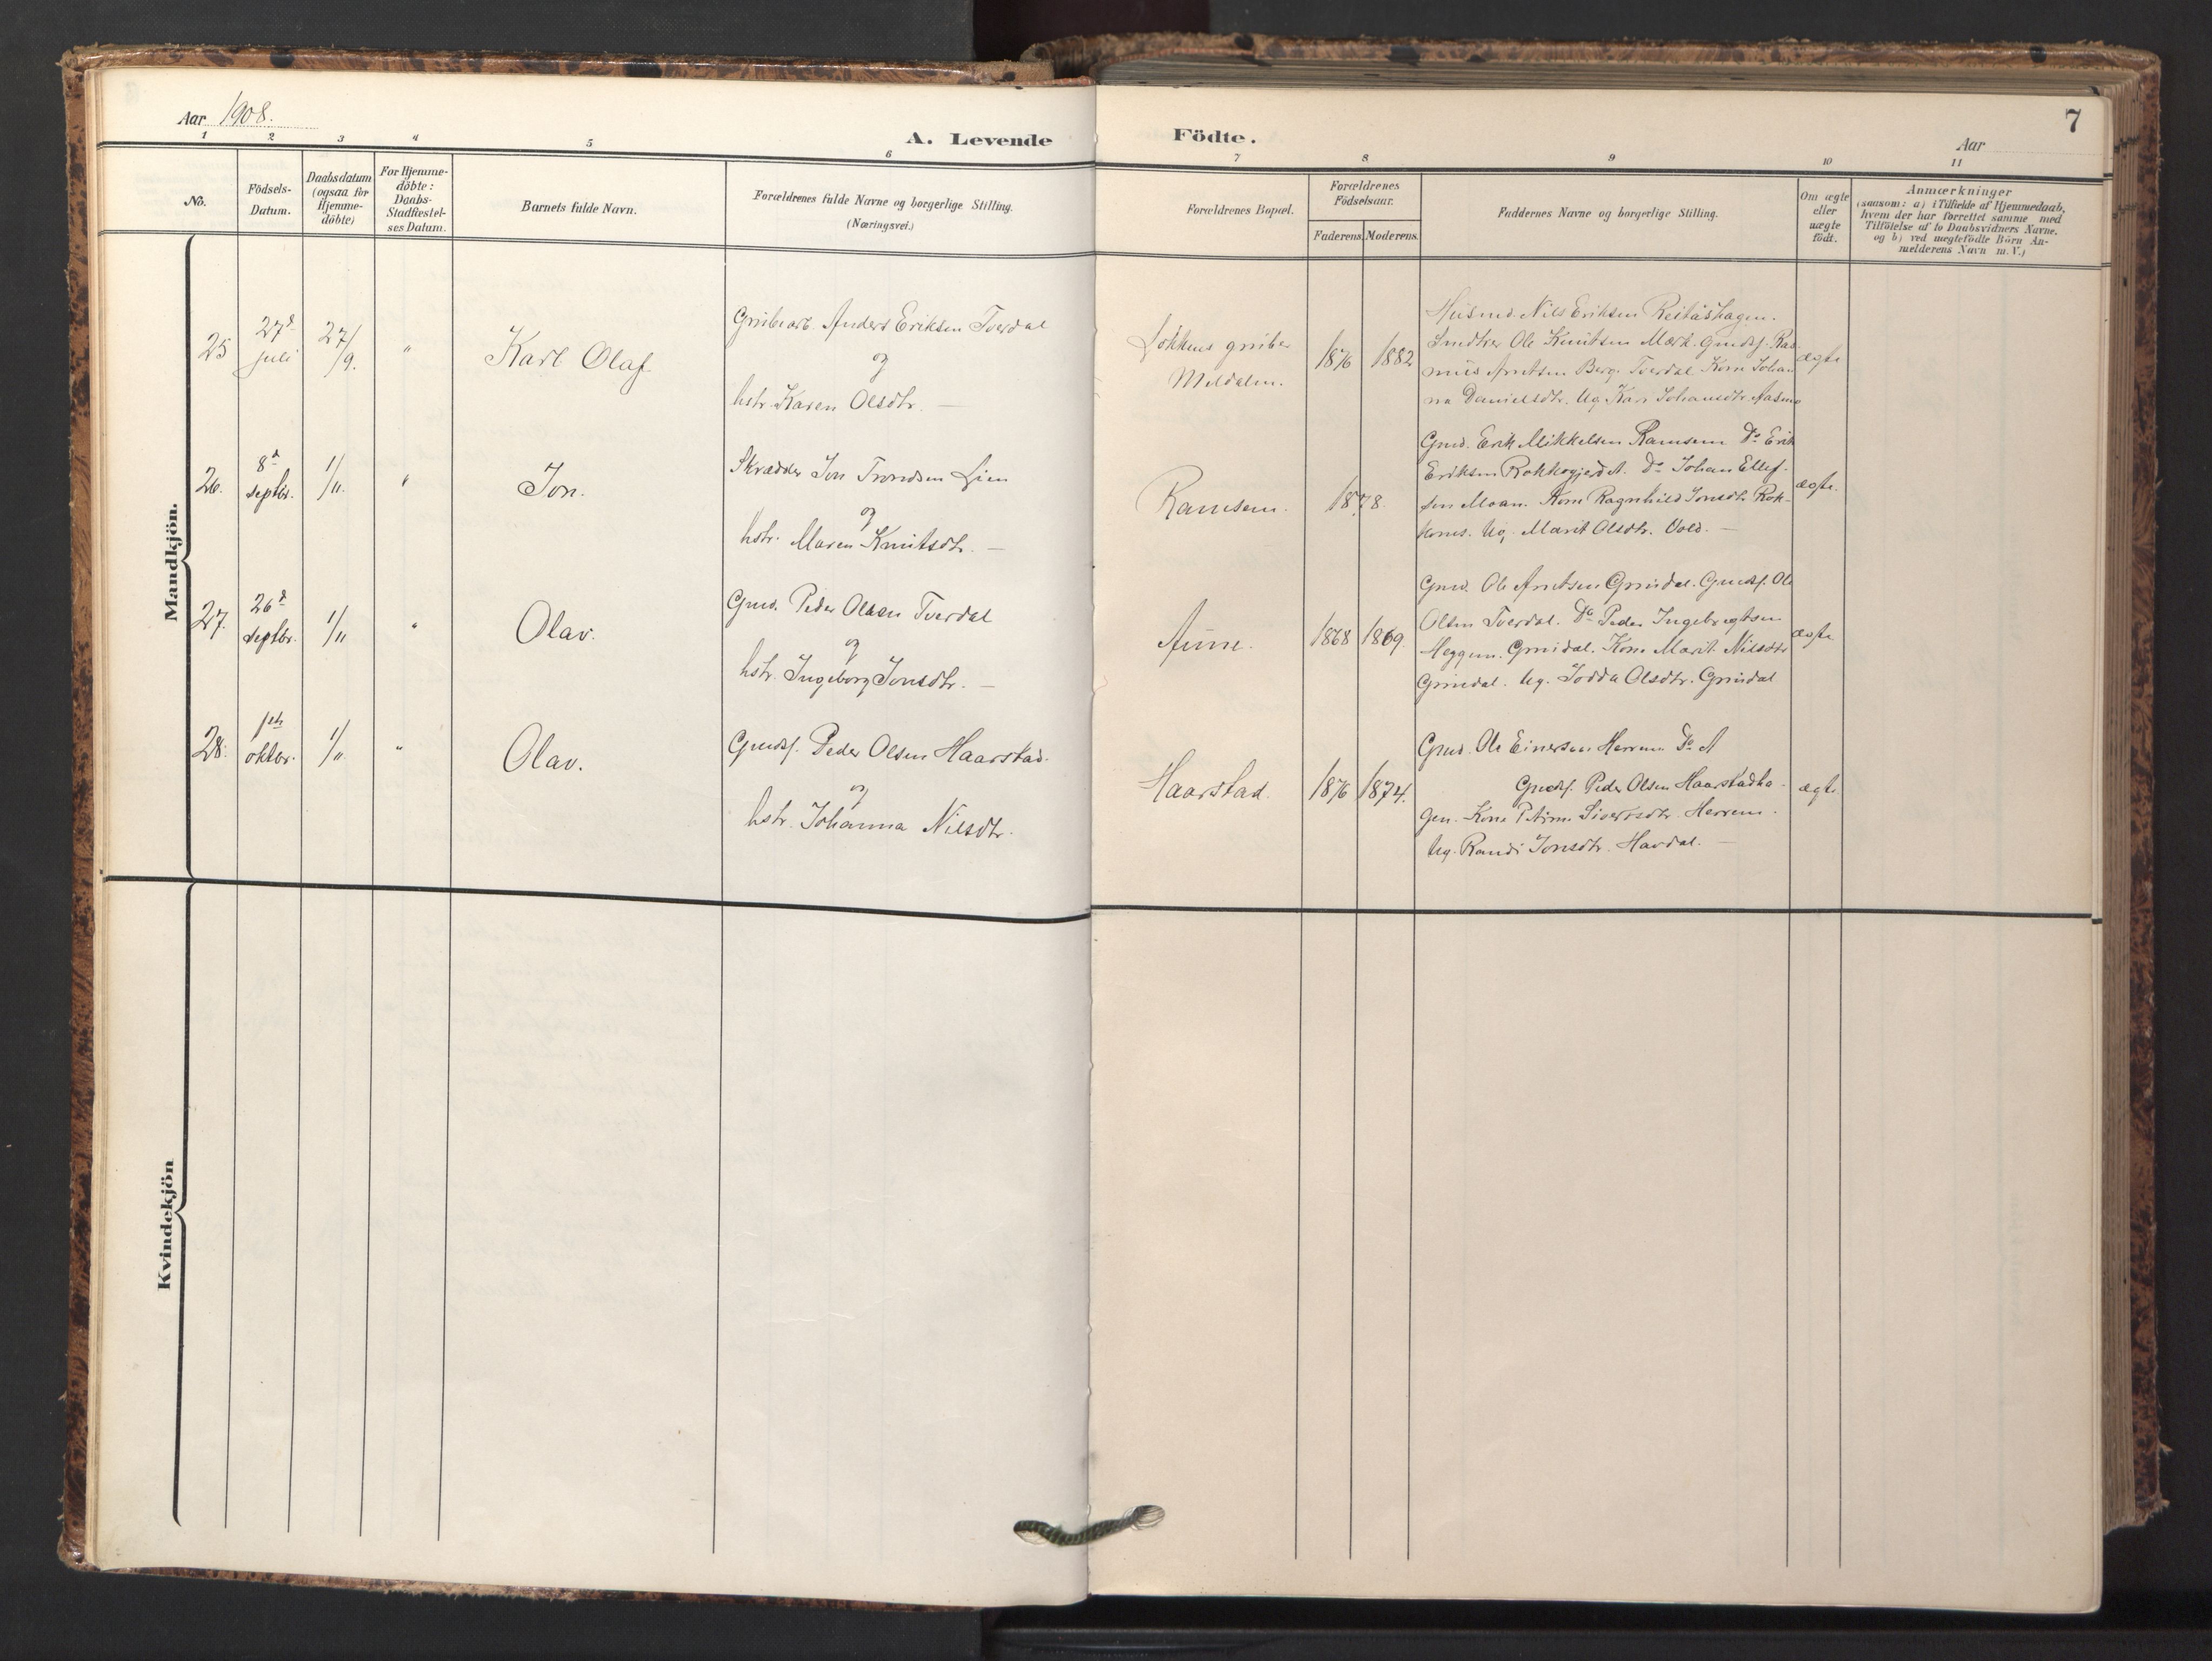 Aar 1908.
A. Levende Födte.
Aar
7
1 2 3 4 5 6 7 8 9 10 11
No.
Födsels-
Datum.
Daabsdatum
(ogsaa for
Hjemme-
döbte)
For Hjemme-
döbte:
Daabs-
Stadfæstel-
ses Datum.
Barnets fulde Navn.
Forældrenes fulde Navne og borgerlige Stilling.
(Næringsvei.)
Forældrenes Bopæl.
Forældrenes
Födselsaar.
Faderens. Moderens.
Faddernes Navne og borgerlige Stilling.
Om ægte
eller
uægte
födt.
Anmærkninger
(saasom: a) i Tilfælde af Hjemmedaab,
hvem der har forrettet samme med
Tilföielse af to Daabsvidners Navne.
og b) ved uægtefödte Börn An-
melderens Navn m.V.)
Mandkjön.
25
27d
juli
27/9.
"
Karl Olaf
Grubearb. Anders Eriksen Tverdal
og
hstr. Karen Olsdtr. —
Løkkens gruber
Meldalen.
1876 1882
Husmd. Nils Eriksen Reitåshagen.
Ole Knutsen Mærk. Gmdsf. Ras-
mus Arntsen Berg. Tverdal Kone Johan
na Danielsdtr. Ug. Kari Johansdtr Aasmo
ægte
26.
8d
septbr.
1/11.
"
Jon.
Skrædder Jon Trondsen Lien
og
hstr. Maren Knutsdtr. —
Ramsem.
1878.
Gmd. Erik Mikkelsen Ramsem Do Erik
Eriksen Rokkogjerdet. Do Johan Ellef-
sen Moan. Kone Ragnhild Jonsdtr. Rok-
Ug. Marit Olsdtr. Vold. —
ægte.
27.
26d
septbr.
1/11
"
Olav.
Gmd. Peder Olsen Tverdal
og
hstr. Ingeborg Jonsdtr. —
Aune.
1868 1869.
Gmd. Ole Arntsen Grindal. Gmdsf. Ole
Olsen Tverdal. Do Peder Ingebrigtsen
Heggem. Grindal. Kone Marit Nilsdtr
Grindal. Ug. Jodda Olsdtr. Grindal
ægte
28.
1ste
oktbr.
1/11
"
Olav.
Gmdsf. Peder Olsen Haarstad.
og
hstr. Johanna Nilsdtr.
Haarstad.
1876 1874.
Gmd. Ole Einersen Herrem Do A
Gmdsf. Peder Olsen Haarstadha-
gen. Kone Sivertsdtr. Herrem.
Ug. Randi Jonsdtr. Havdal. —
ægte
Kvindekjön